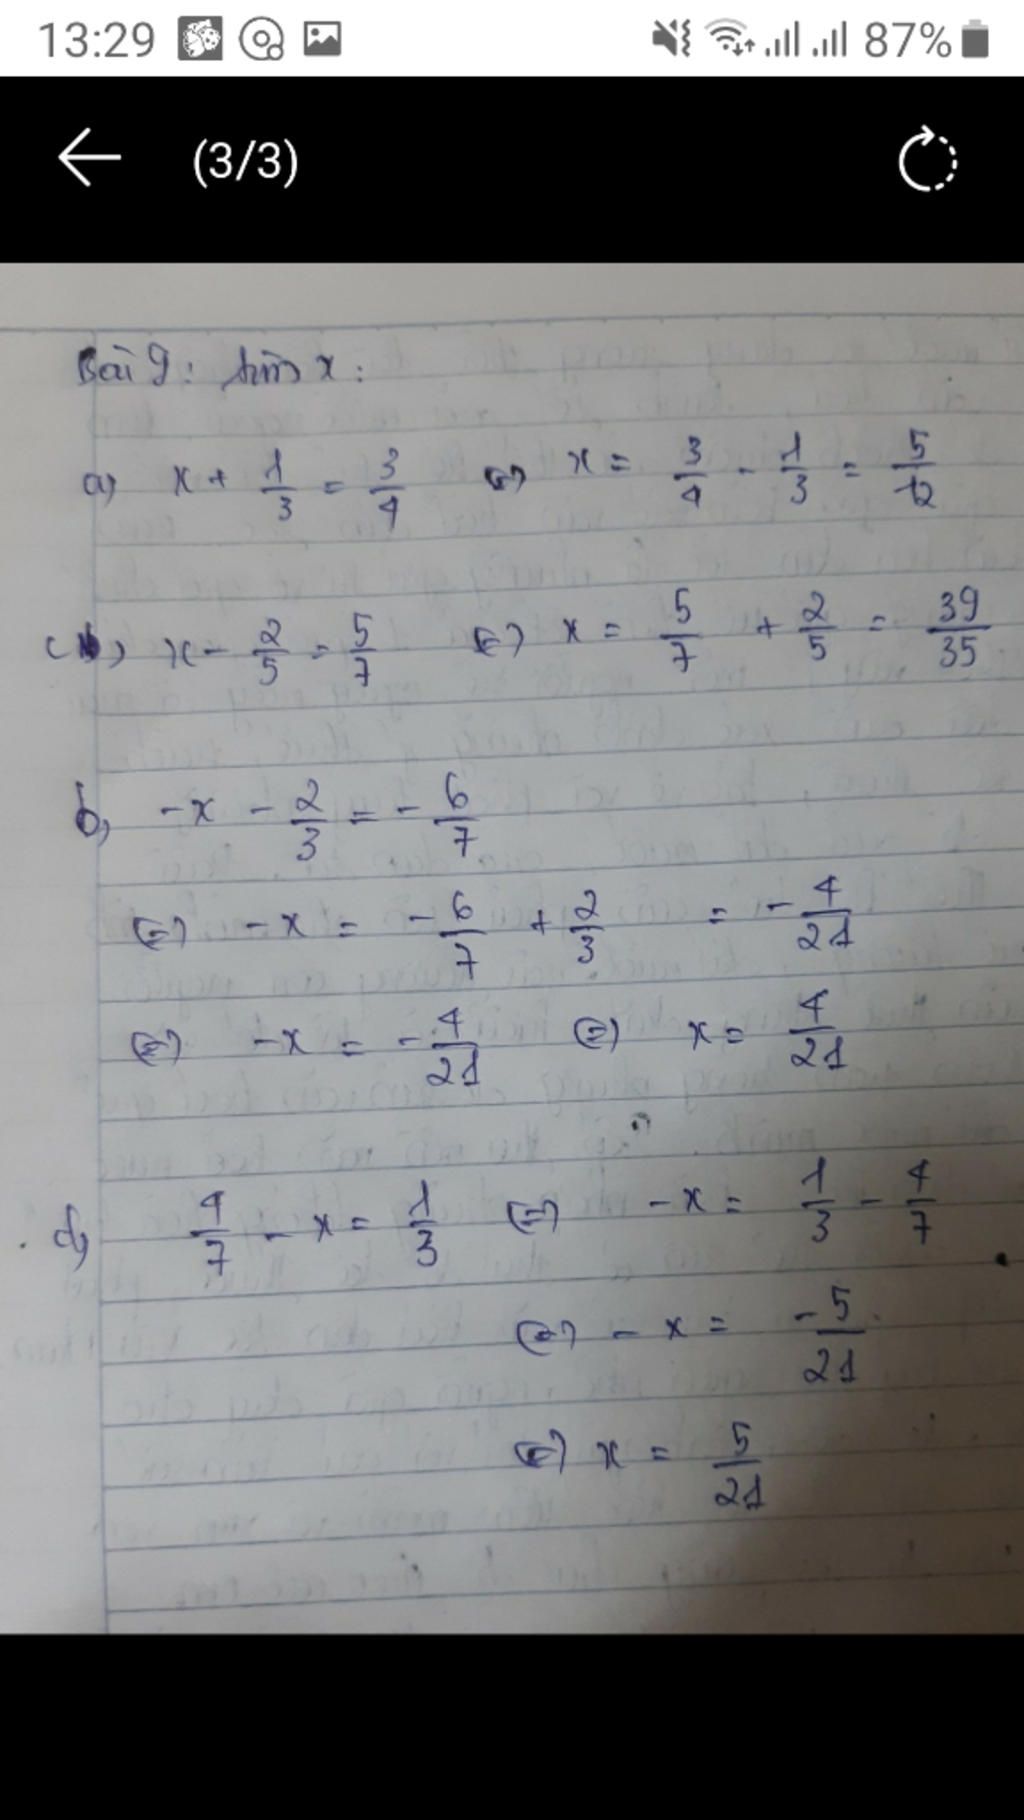 13:29 87%
(3/3)
Bài 9: tìm x:
a) x + 1/3 = 3/4 (=) x = 3/4 - 1/3 = 5/12
c) x - 2/5 = 5/7 (=) x = 5/7 + 2/5 = 39/35
b, -x - 2/3 = - 6/7
(=) -x = - 6/7 + 2/3 = - 4/21
(=) -x = - 4/21 (=) x = 4/21
d, 4/7 - x = 1/3 (=) -x = 1/3 - 4/7
(=) - x = -5/21
(=) x = 5/21